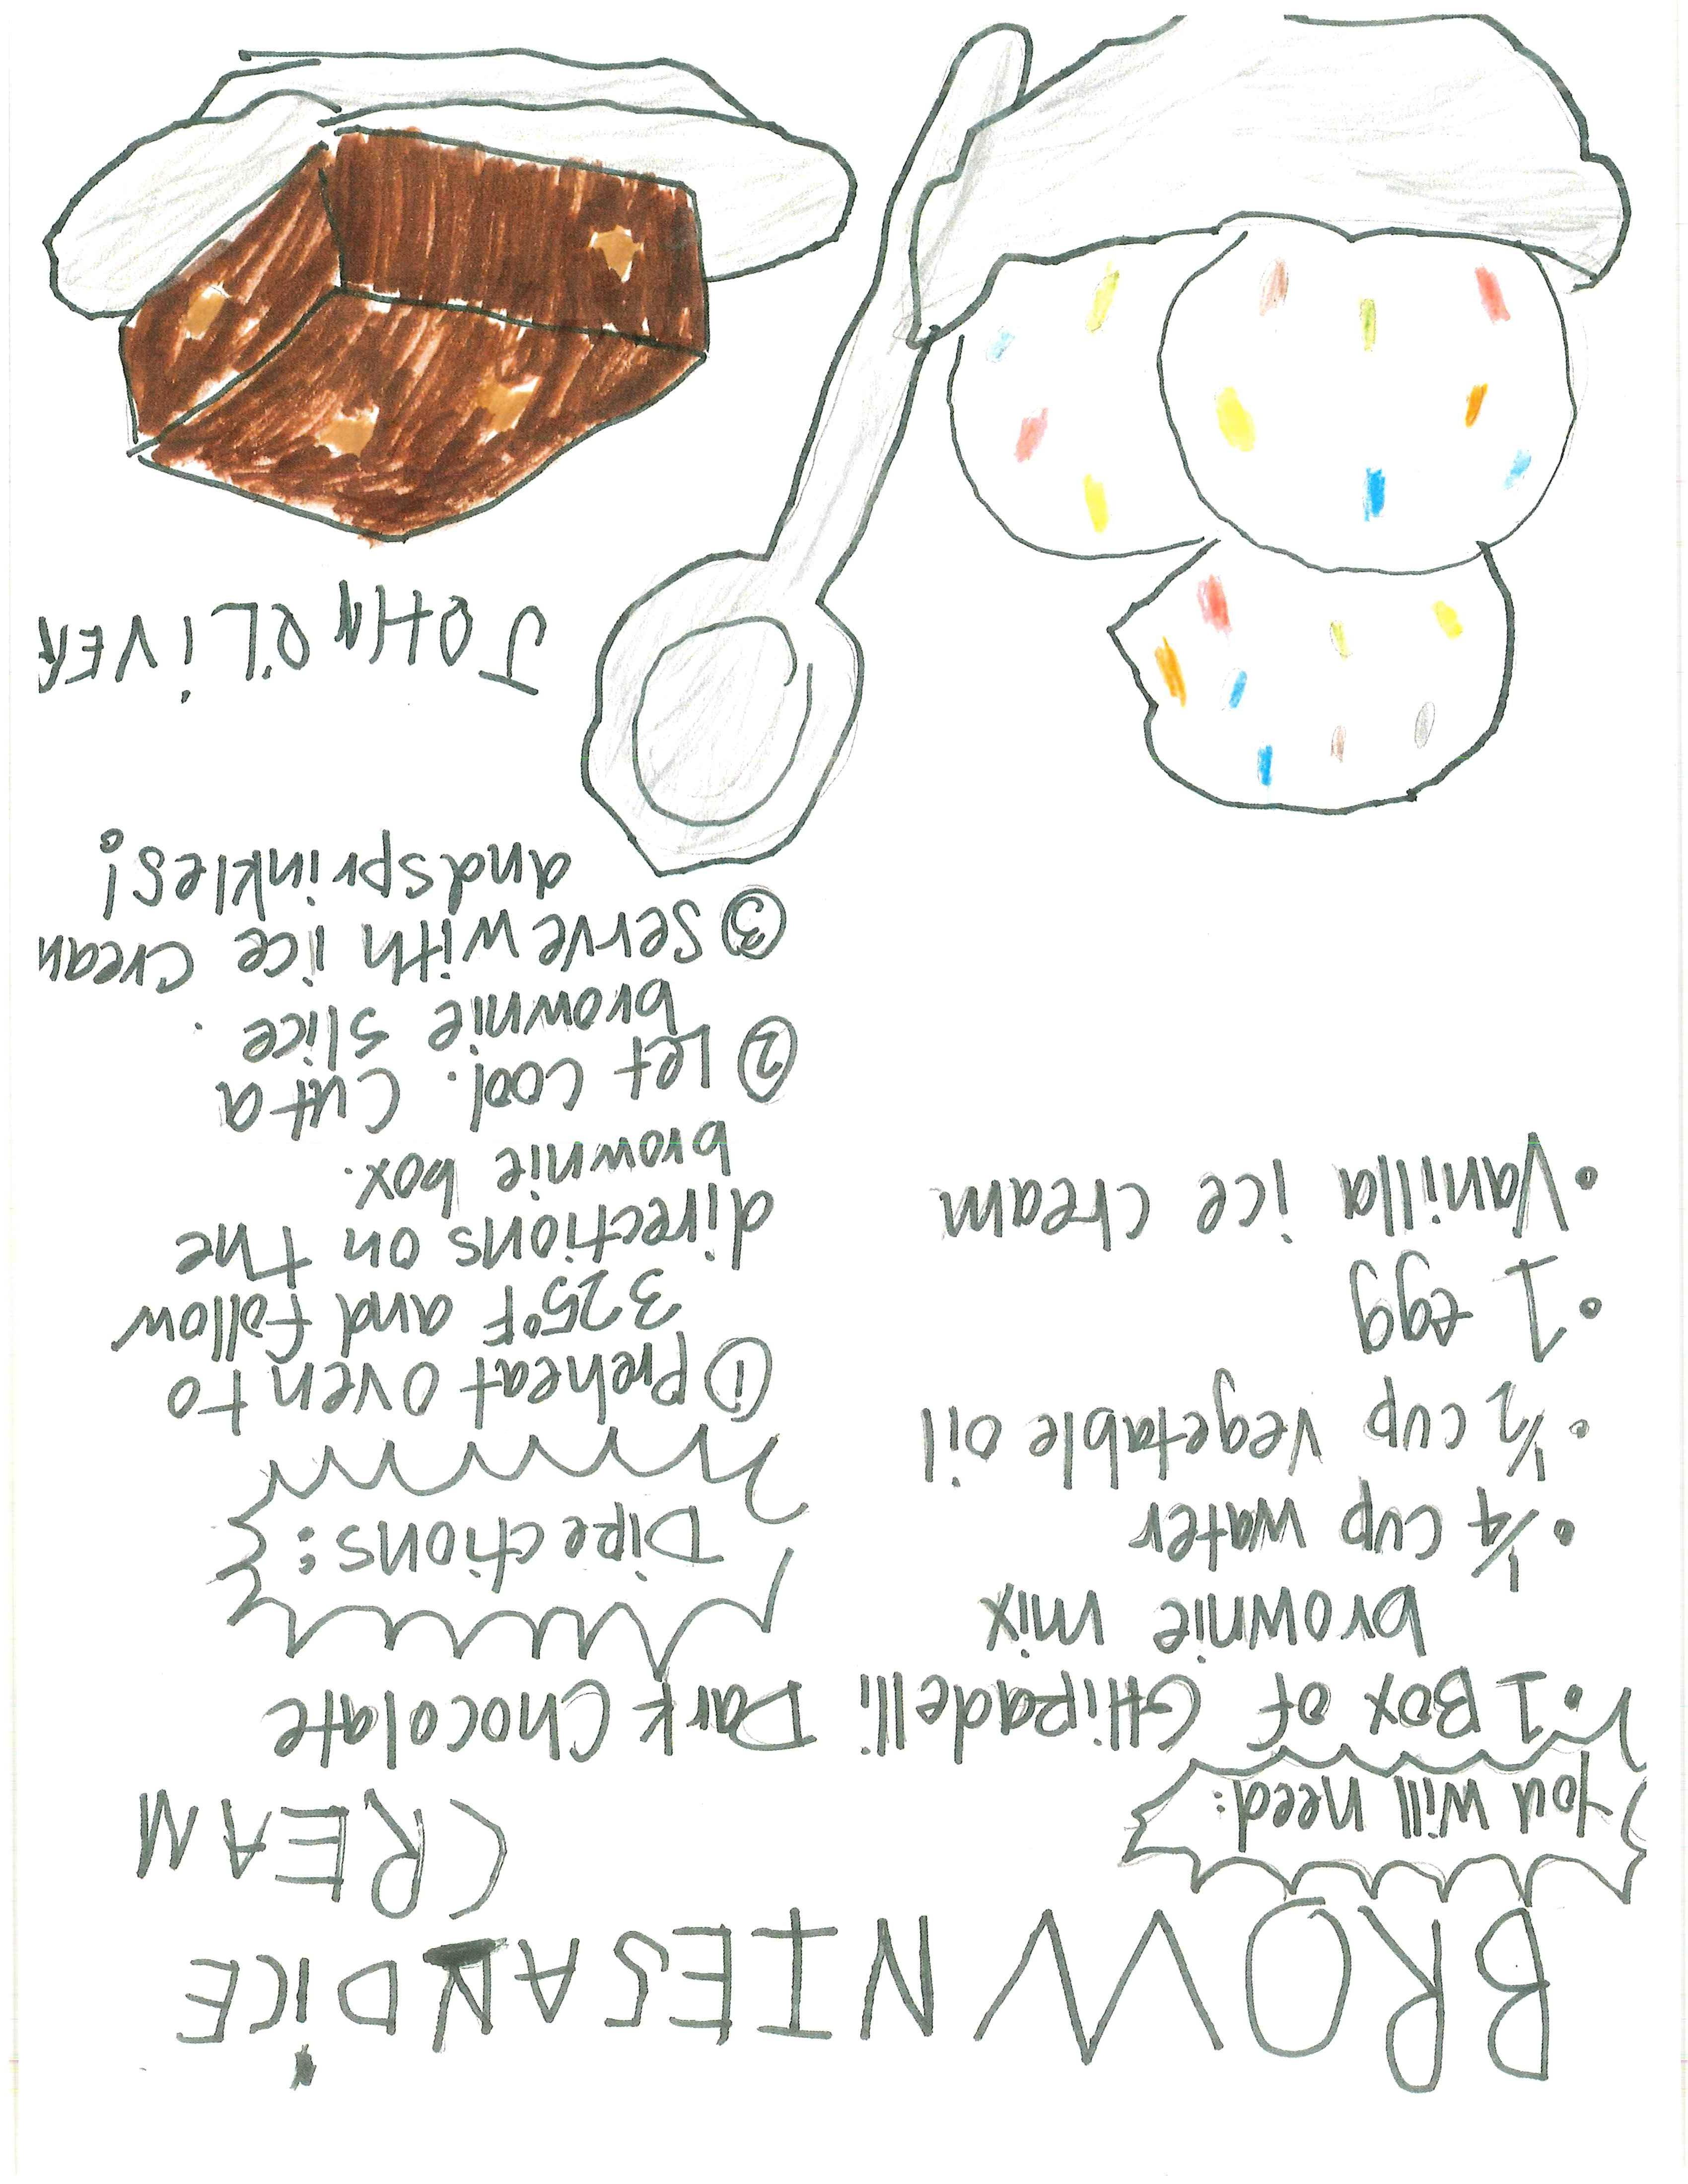 BROWNIES AND ICE
CREAM
You will need:
• 1 Box of GHiRadelli Dark Chocolate
brownie mix
• 1/4 cup water
• 1/2 cup vegetable oil
• 1 egg
• Vanilla ice cream
DiRections:
① Preheat oven to
325°F and follow
directions on the
brownie box.
② Let cool. Cut a
brownie slice.
③ Serve with ice cream
and sprinkles!
JOHN OLiVER